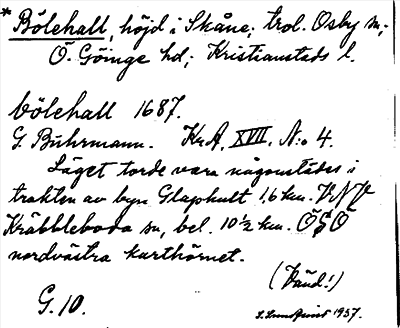 * Bölehall, höjd i Skåne; trol. Osby sn;
Ö. Göinge hd; Kristianstads l.
Bölehall 1687.
G. Buhrmann. Kr.A, XVII, N:o 4.
Läget torde vara någonstädes i
trakten av byn Glaphult 1,6 km. VNV
Kräbbleboda sn, bel. 10½ km. ÖSÖ
nordvästra karthörnet.
(Vänd!)
G. 10.
S. Lundquist 1937.